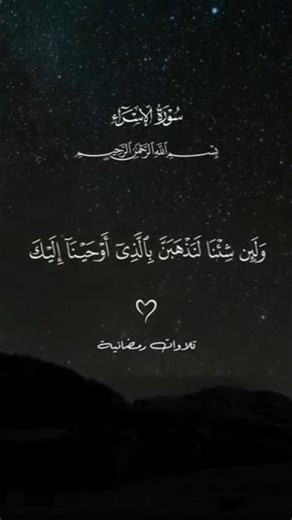 سُورَةُ الإِسْرَاءِ
بِسْمِ اللَّهِ الرَّحْمَٰنِ الرَّحِيمِ
وَلَئِن شِئْنَا لَنَذْهَبَنَّ بِالَّذِىٓ أَوْحَيْنَآ إِلَيْكَ
تلاوات رمضانية